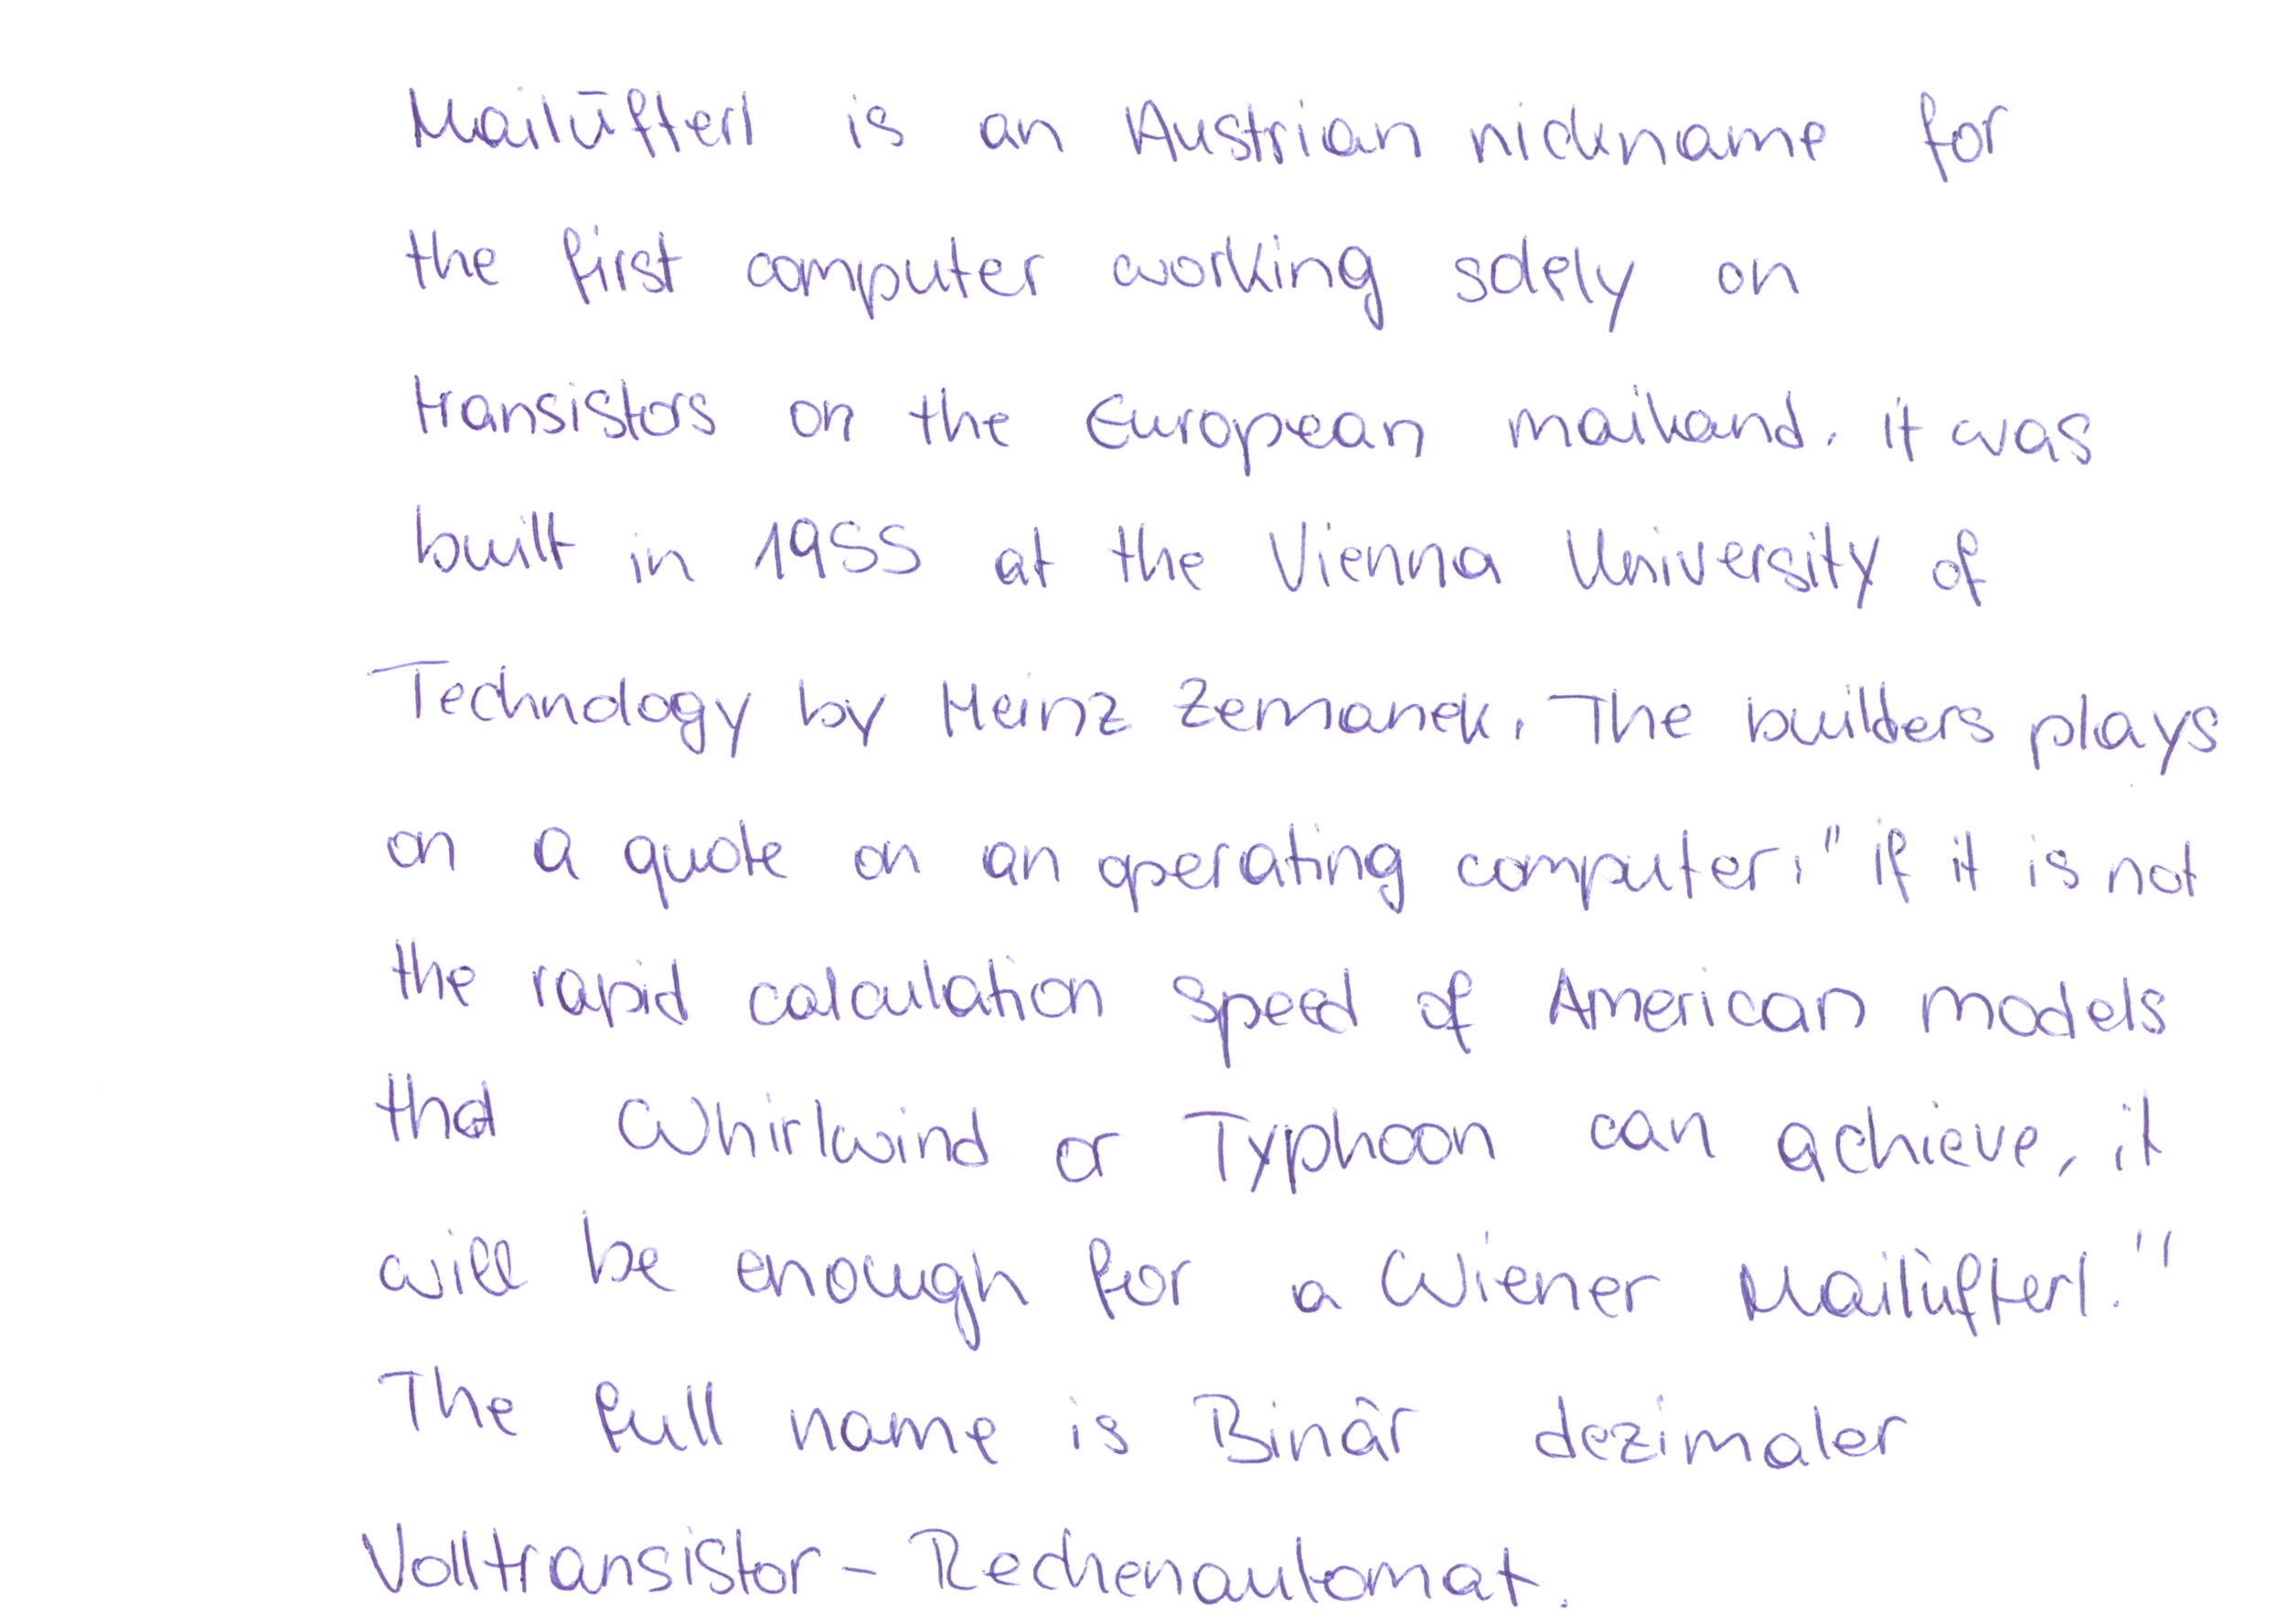 Mailüfterl is an Austrian nickname for
the first computer working solely on
transistors on the European mailand. it was
built in 1955 at the Vienna University of
Technology by Heinz Zemanek. The builders plays
on a quote on an operating computer: "if it is not
the rapid calculation speed of American models
that Whirlwind or Typhoon can achieve, it
will be enough for a Wiener Mailüfterl."
The full name is Binär dezimaler
Volltransistor-Rechenautomat.